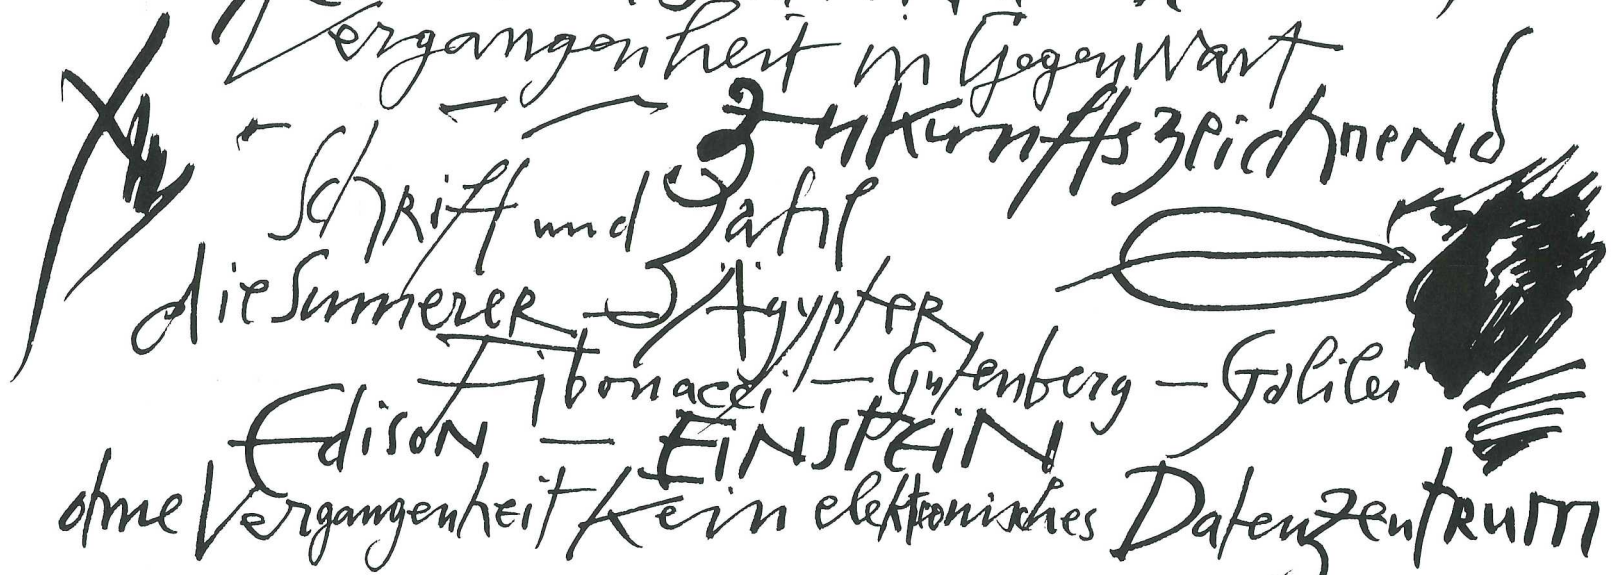 Vergangenheit in Gegenwart
Zukunftszeichnend
Schrift und Zahl
die Sumerer – Ägypter
Fibonacci – Gutenberg – Galilei
Edison – EINSTEIN
ohne Vergangenheit kein elektronisches Datenzentrum